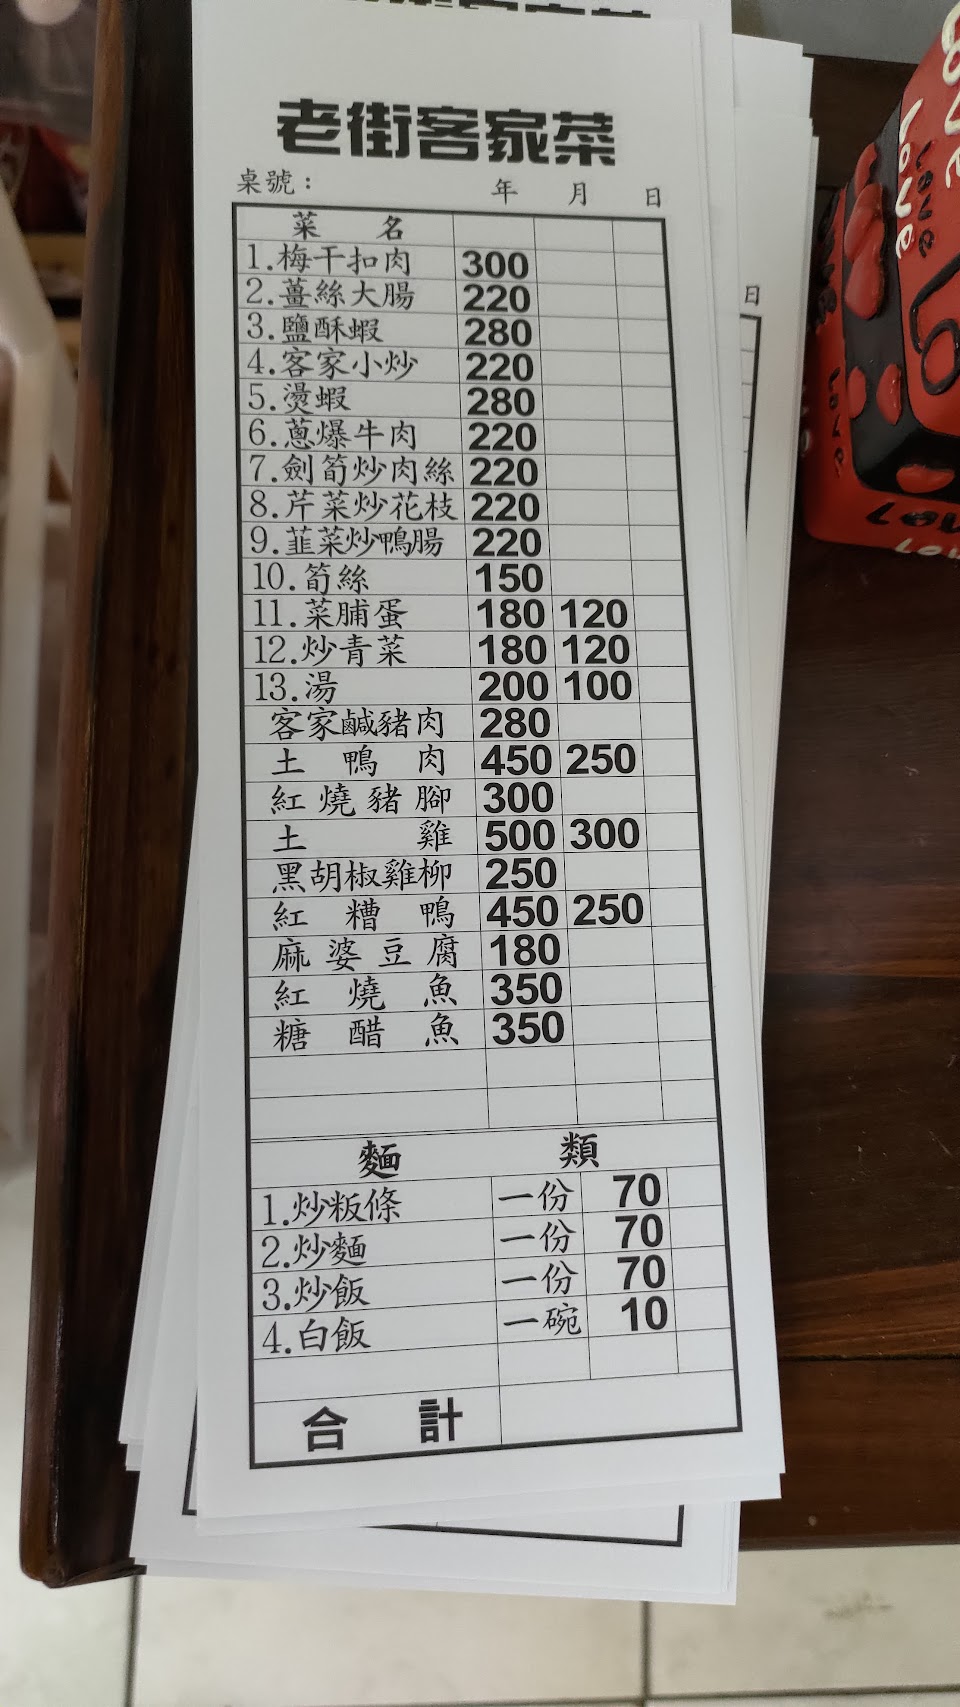 老街客家菜
桌號： 年 月 日
菜 名
1.梅干扣肉 300
2.薑絲大腸 220
3.鹽酥蝦 280
4.客家小炒 220
5.燙蝦 280
6.蔥爆牛肉 220
7.劍筍炒肉絲 220
8.芹菜炒花枝 220
9.韮菜炒鴨腸 220
10.筍絲 150
11.菜脯蛋 180 120
12.炒青菜 180 120
13.湯 200 100
客家鹹豬肉 280
土鴨肉 450 250
紅燒豬腳 300
土雞 500 300
黑胡椒雞柳 250
紅糟鴨 450 250
麻婆豆腐 180
紅燒魚 350
糖醋魚 350
麵 類
1.炒粄條 一份 70
2.炒麵 一份 70
3.炒飯 一份 70
4.白飯 一碗 10
合 計
日
Love
Love
Love